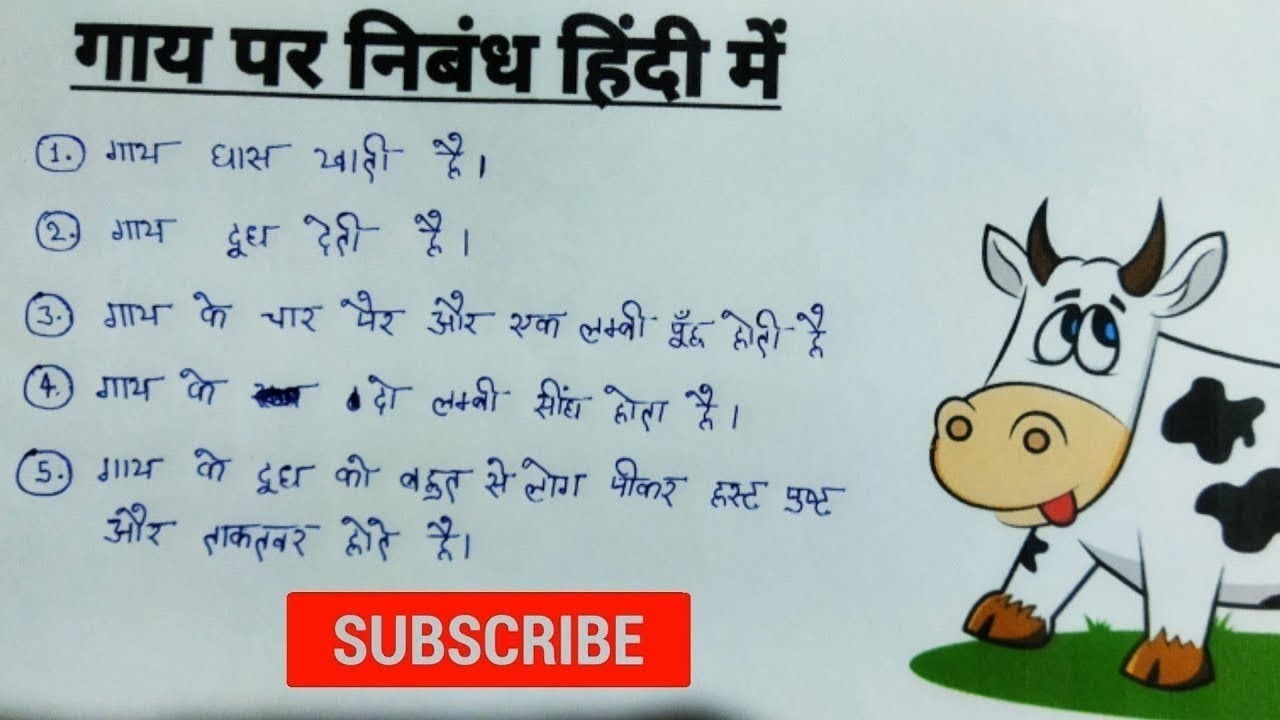 गाय पर निबंध हिंदी में
1. गाय घास खाती है।
2. गाय दूध देती है।
3. गाय के चार पैर और एक लम्बी पूँछ होती है
4. गाय के दो लम्बी सींघ होता है।
5. गाय के दूध को बहुत से लोग पीकर हस्ट पुष्ट
और ताकतवर होते है।
SUBSCRIBE